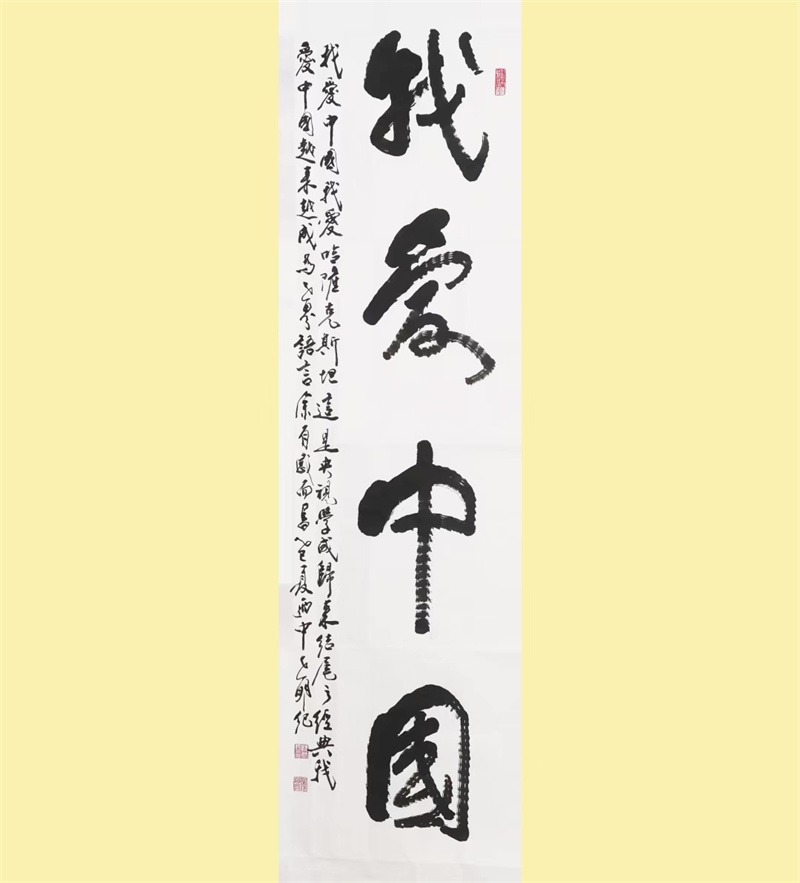 我愛中國
我愛中國我愛哈薩克斯坦這是央視學成歸來結尾之經典我
愛中國越來越成為世界語言余有感而書
夏 中 紀